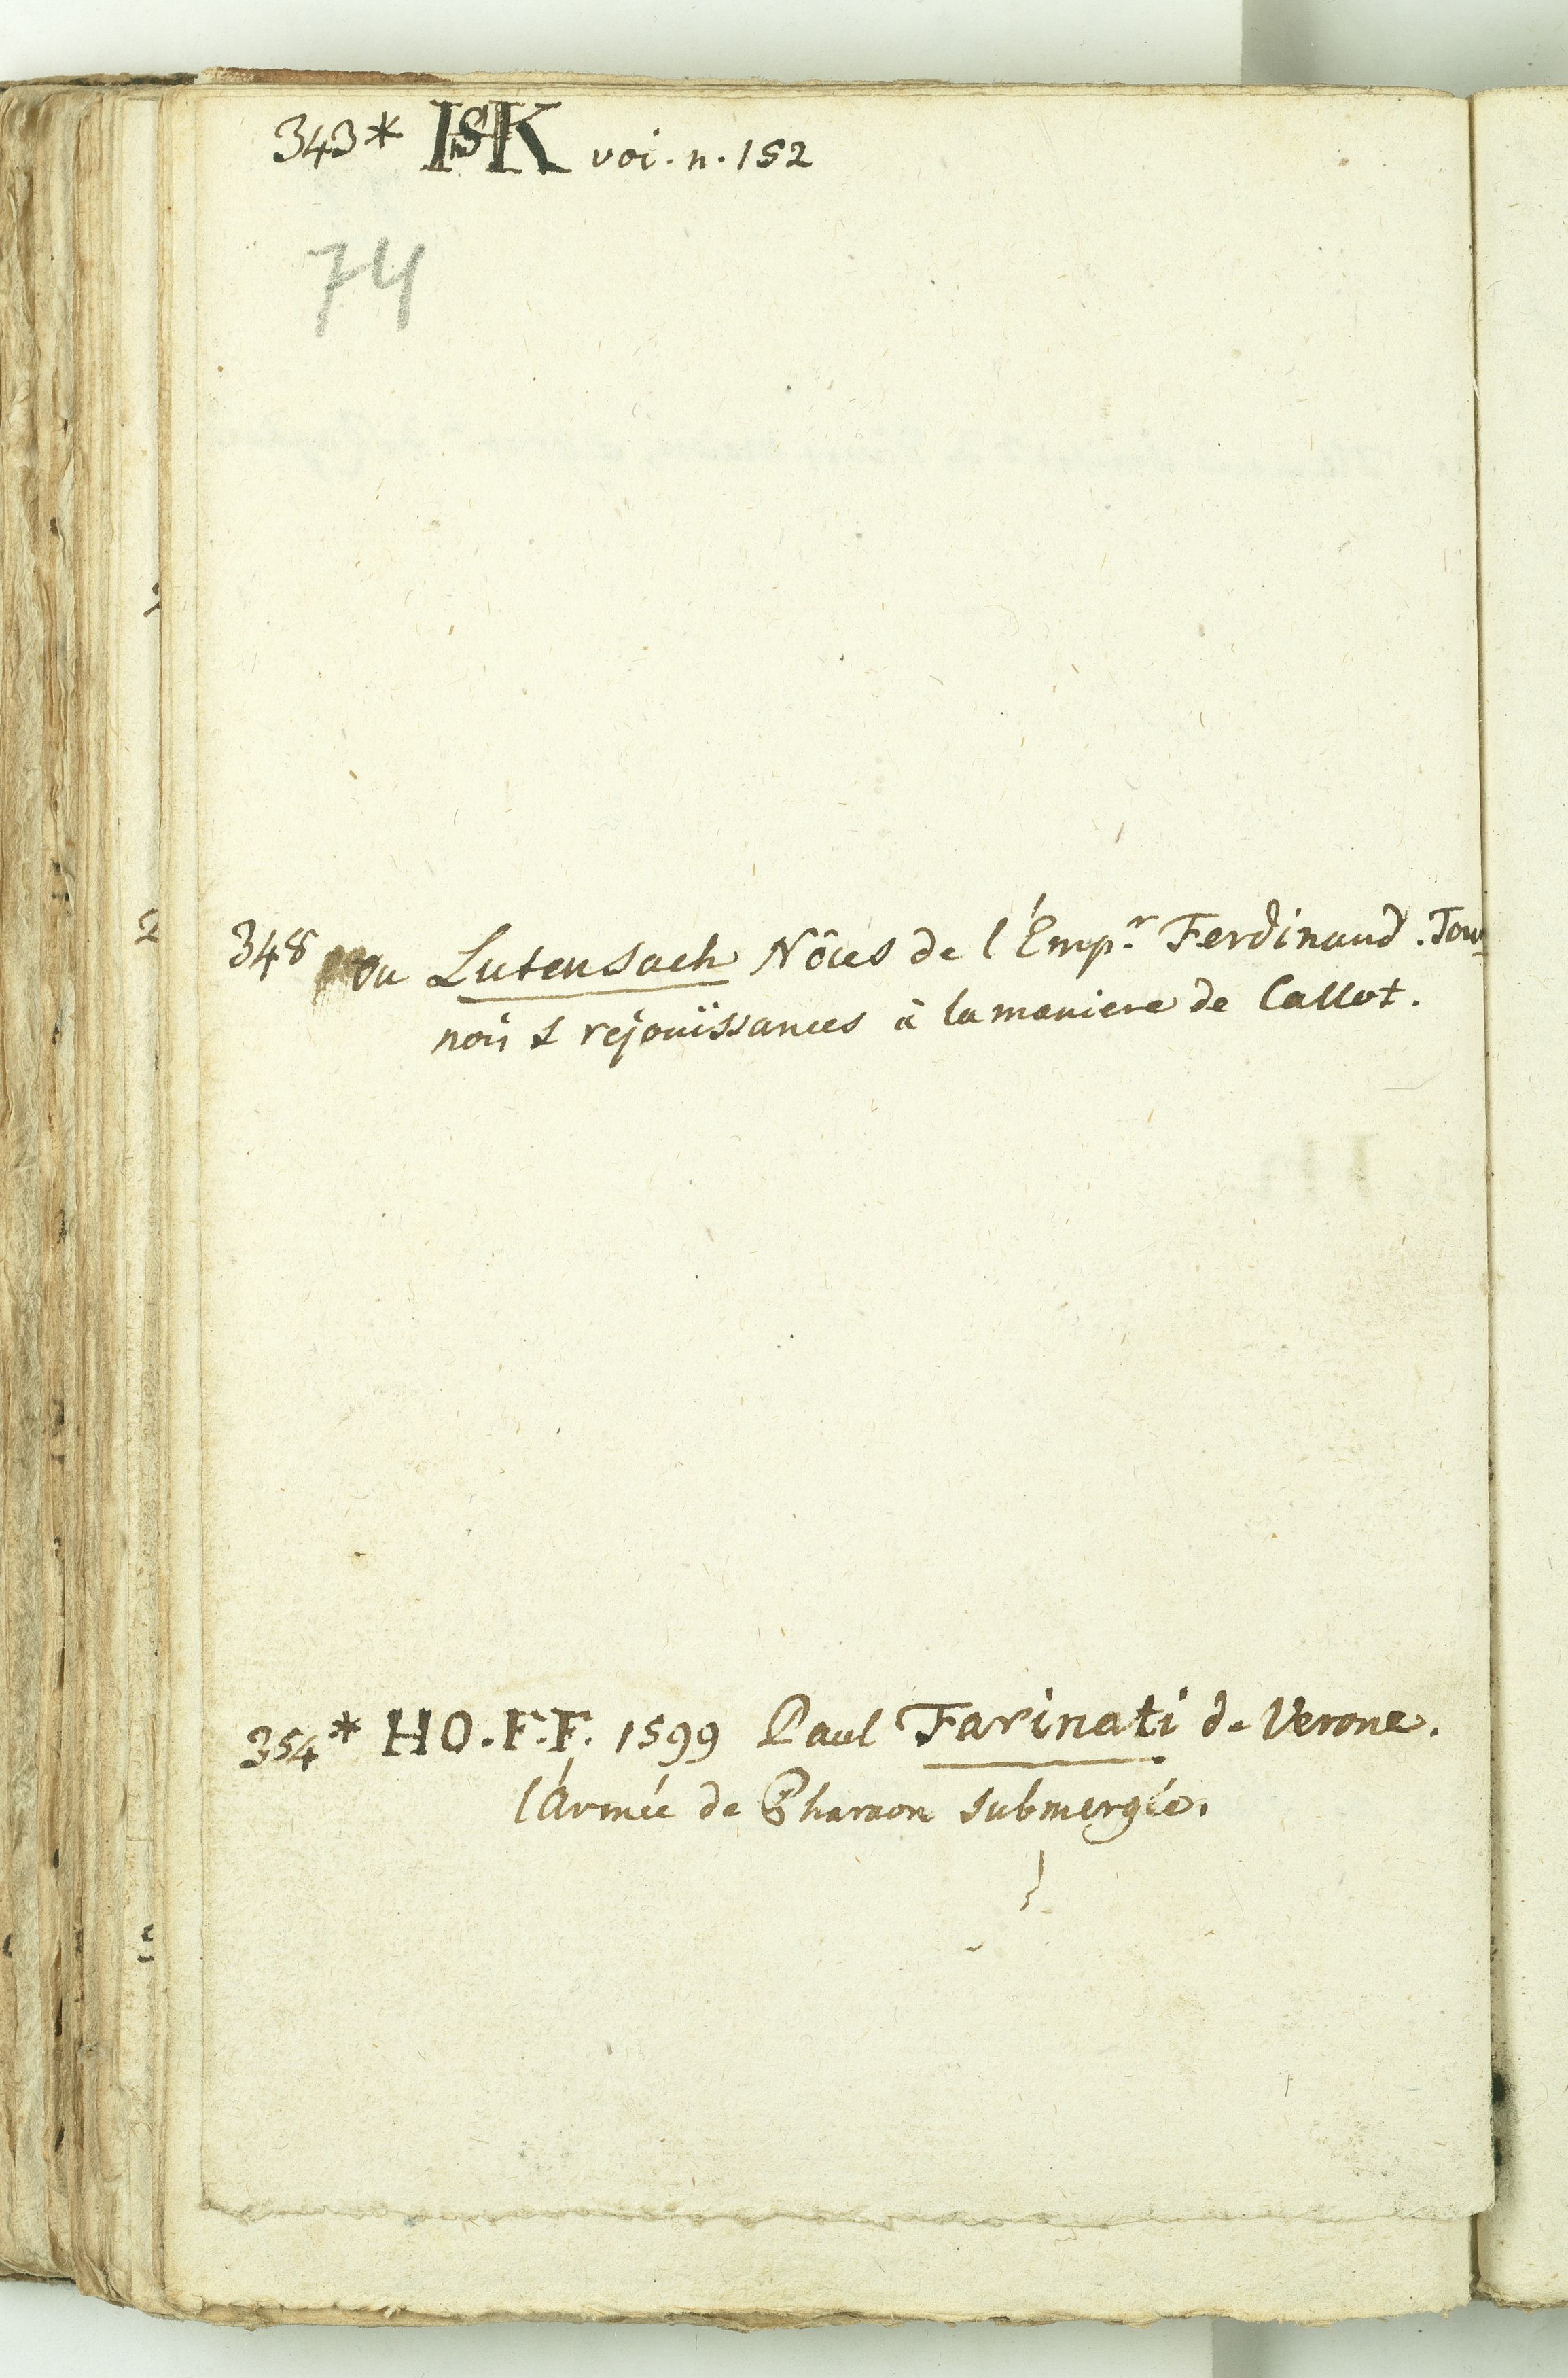 343* HSK voi. n. 152
74
348 ou Lutensach Nôces de l'Emp.r Ferdinand. Tour-
nois & rejouïssances à la maniere de Callot.
354* HO. F. F. 1599 Paul Farinati de Verone.
l'Armée de Pharaon submergée.